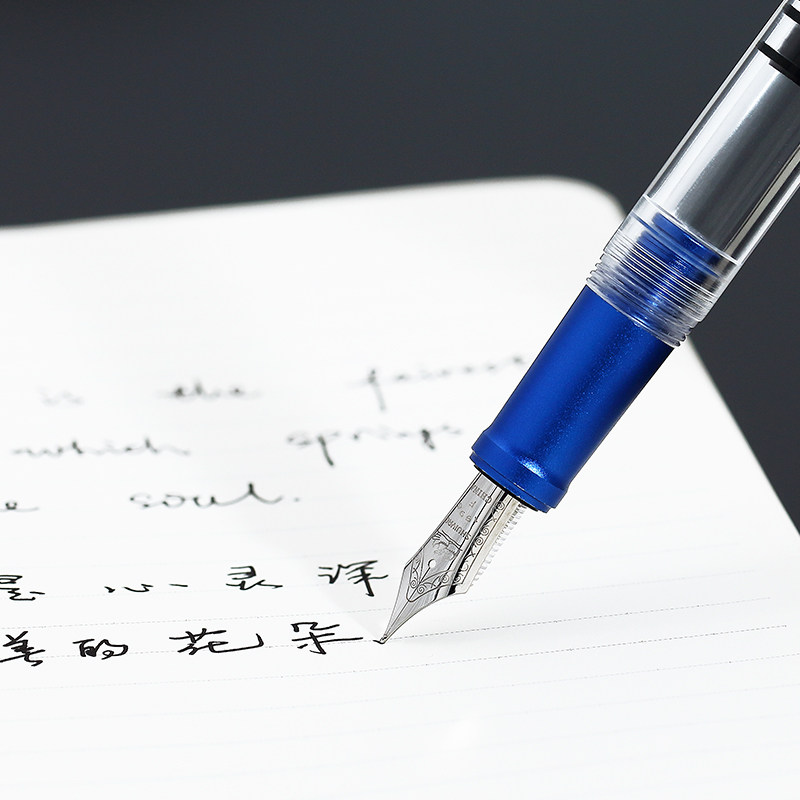 is the fairest
which springs
e soul.
是 心 灵 深
美的花朵